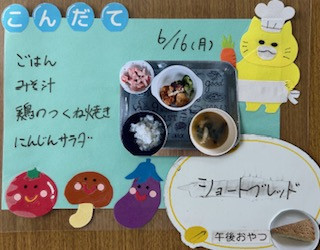 こんだて
6/16(月)
ごはん
みそ汁
鶏のつくね焼き
にんじんサラダ
ショートブレッド
午後おやつ